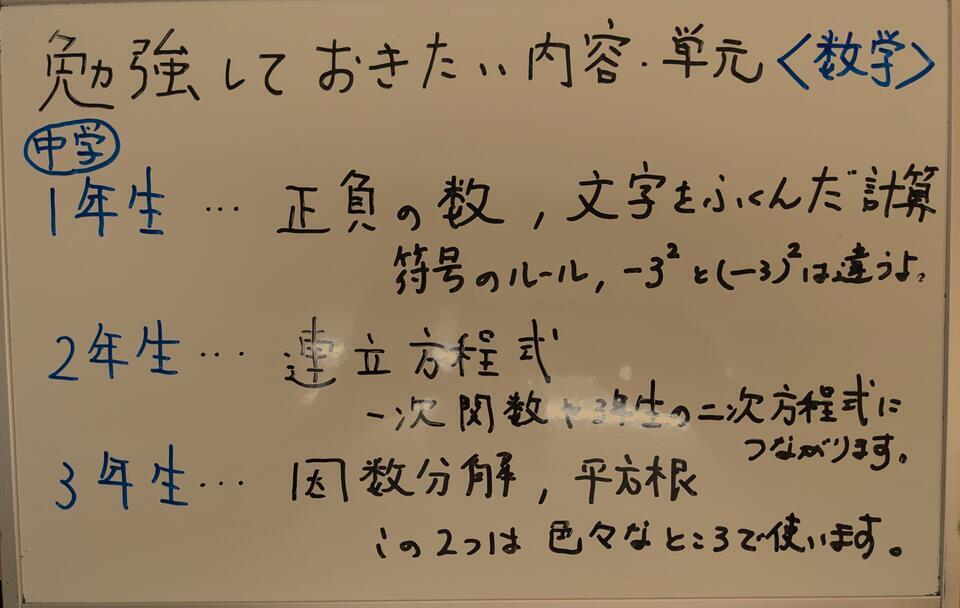 勉強しておきたい内容・単元〈数学〉
中学
1年生… 正負の数,文字をふくんだ計算
符号のルール,-3²と(-3)²は違うよ。
2年生… 連立方程式
一次関数や3年生の二次方程式に
つながります。
3年生… 因数分解,平方根
この2つは色々なところで使います。